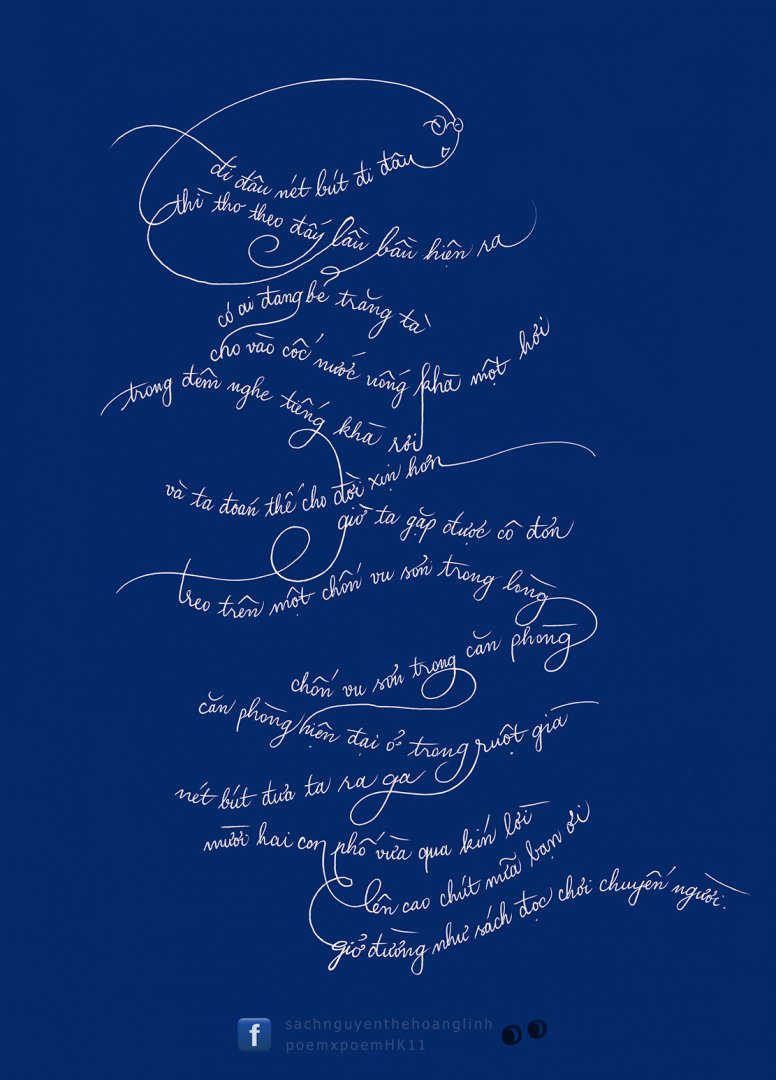 đi đâu nét bút đi đâu
thì thơ theo đấy lầu bầu hiện ra
có ai đang bẻ trăng tà
cho vào cốc nước uống khà một hơi
trong đêm nghe tiếng khà rơi
và ta đoán thế cho đời xịn hơn
giờ ta gặp được cô đơn
treo trên một chốn vu sơn trong lòng
chốn vu sơn trong căn phòng
căn phòng hiện đại ở trong ruột già
nét bút đưa ta ra ga
mười hai con phố vừa qua kín lời
lên cao chút nữa bạn ơi
giở đường như sách đọc chơi chuyện người.
f sachnguyenthehoanglinh
poemxpoemHK11